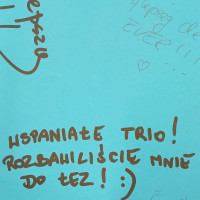 EVER!!!
WSPANIAŁE TRIO!
ROZBAWILIŚCIE MNIE
DO ŁEZ! :)